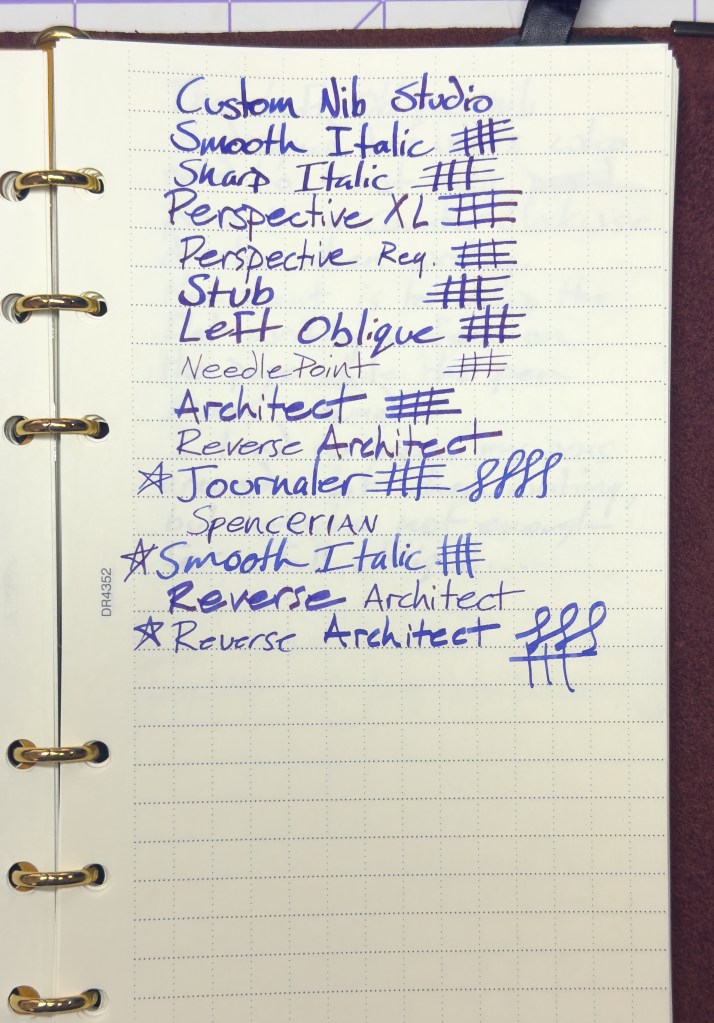 Custom Nib Studio
Smooth Italic
Sharp Italic
Perspective XL
Perspective Reg.
Stub
Left Oblique
NeedlePoint
Architect
Reverse Architect
☆ Journaler
SpencerIAN
☆ Smooth Italic
Reverse Architect
☆ Reverse Architect
DR4352